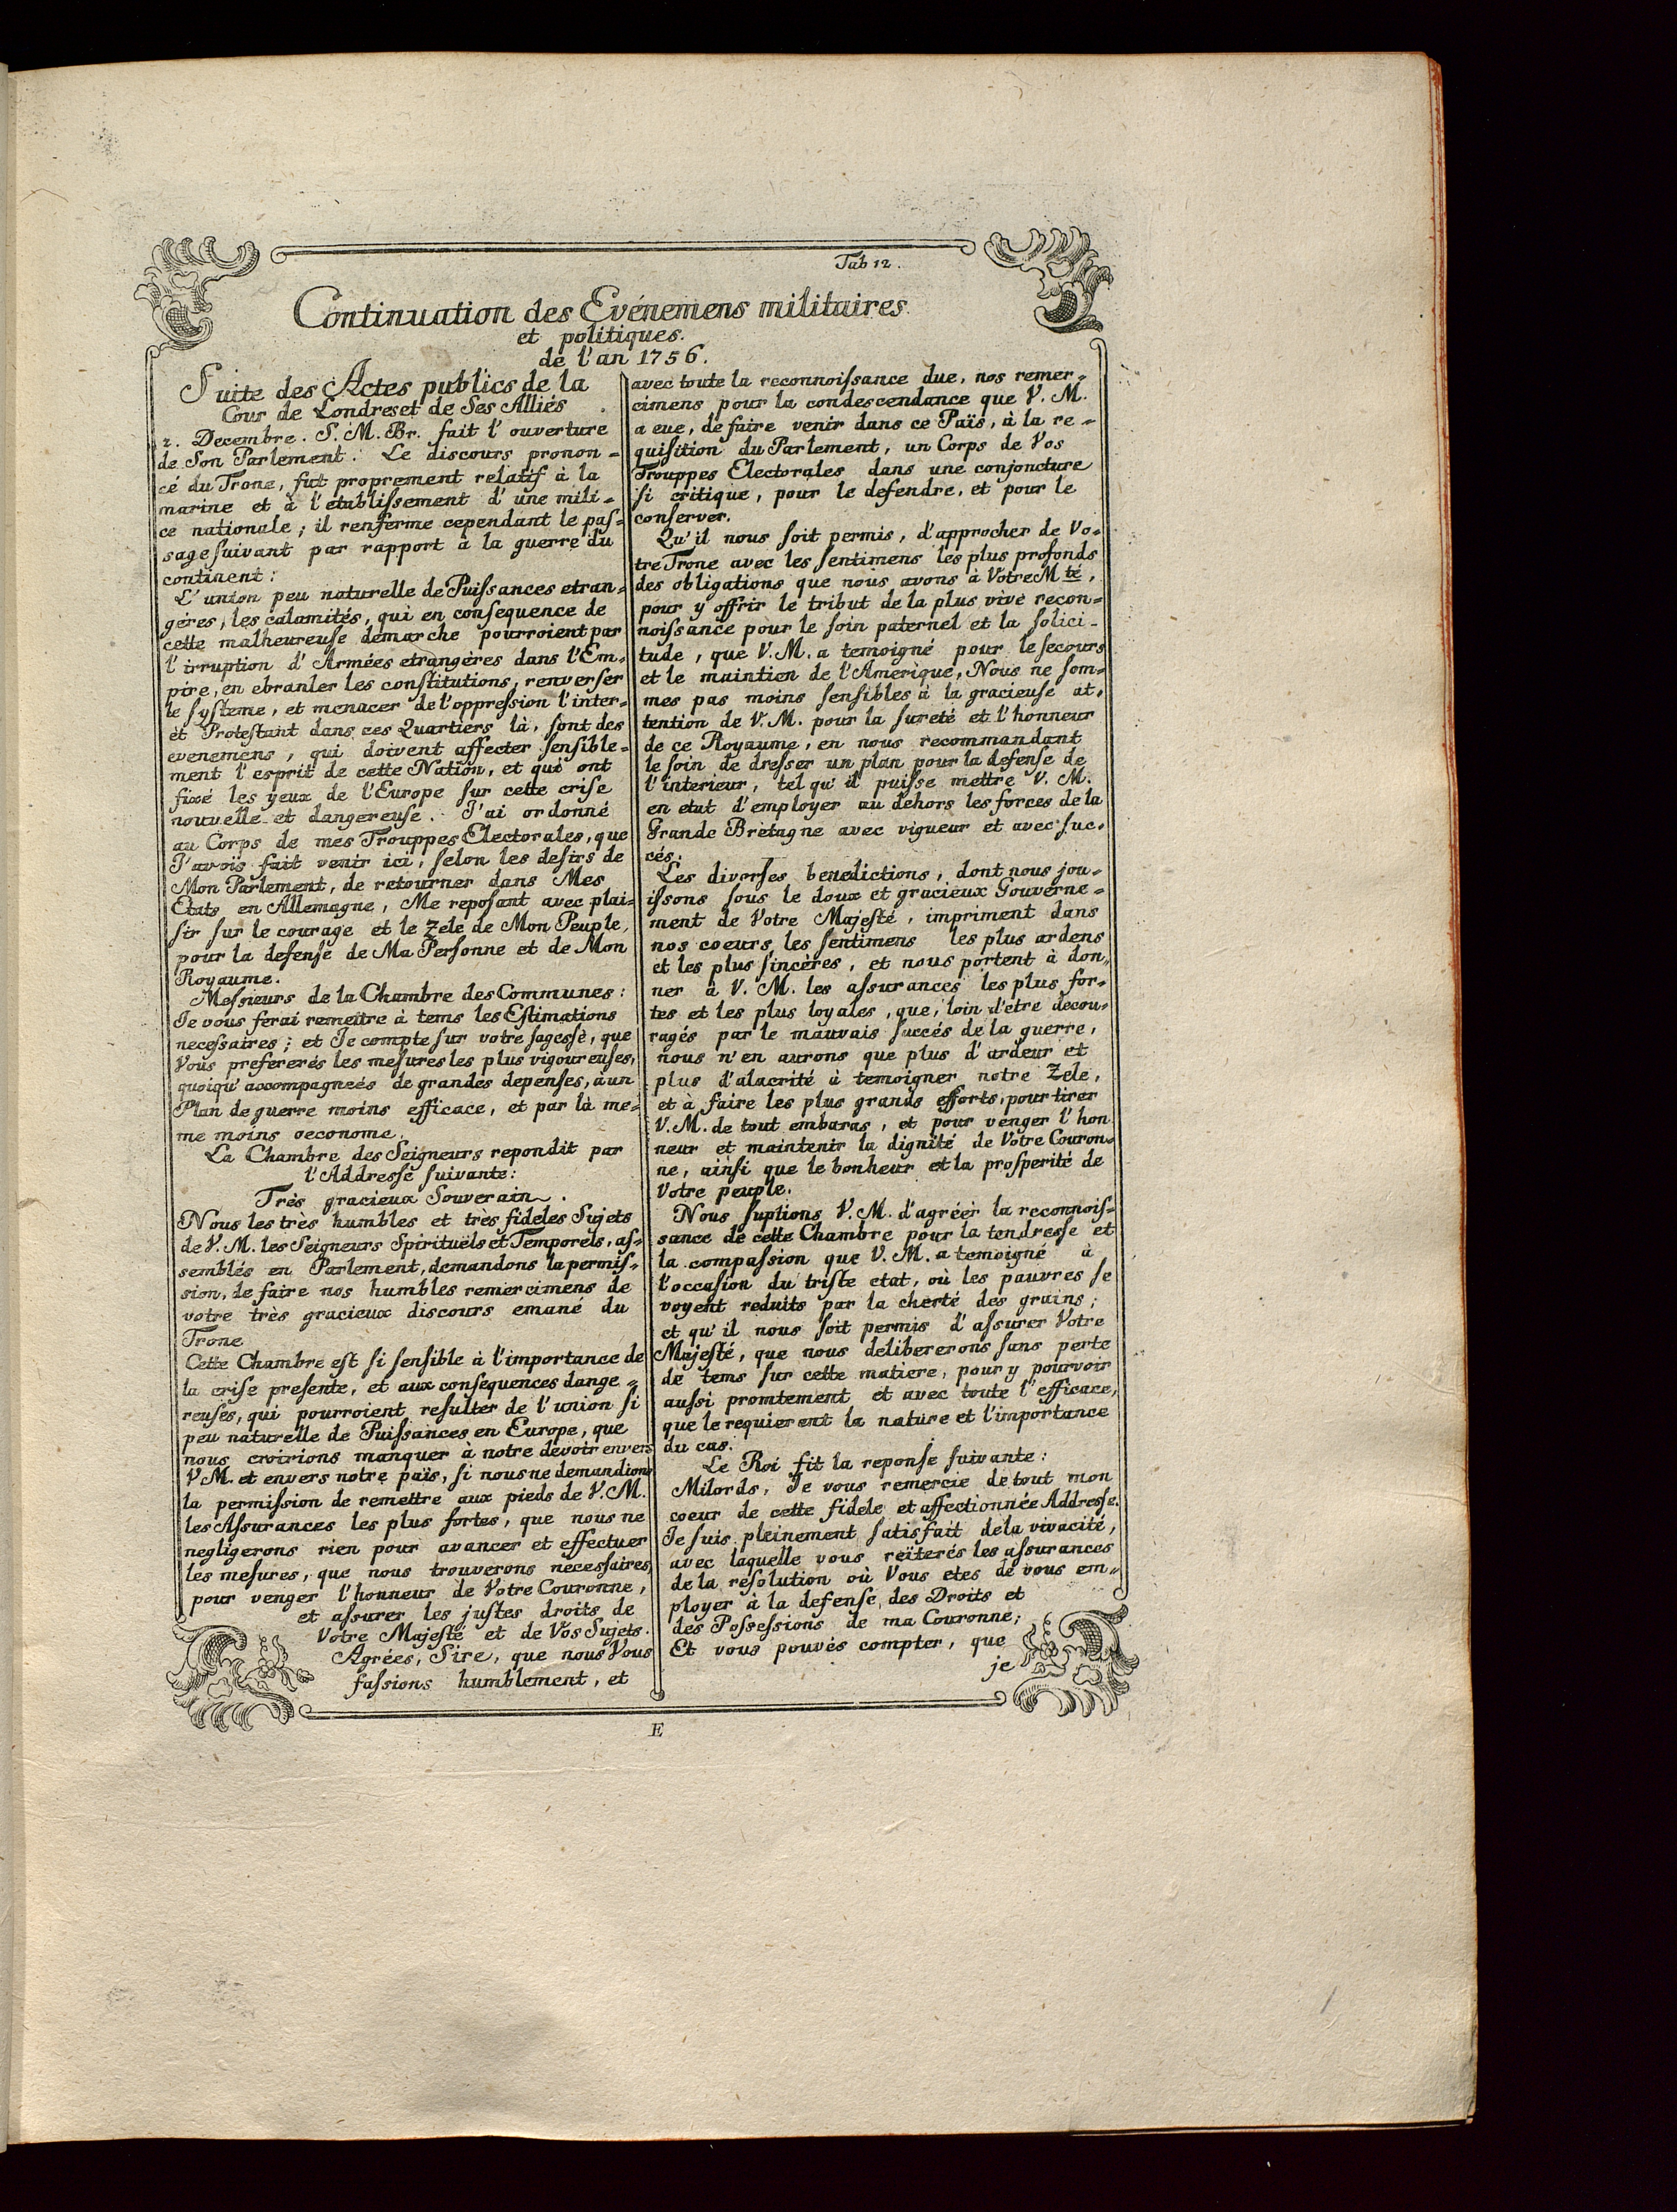 Tab 12.
Continuation des Evénemens militaires
et politiques.
de l'an 1756.
Suite des Actes publics de la
Cour de Londres et de Ses Alliés.
2. Decembre. S. M. Br. fait l'ouverture
de Son Parlement. Le discours pronon=
cé du Trone, fut proprement relatif à la
marine et à l'etablissement d'une mili=
ce nationale; il renferme cependant le pas=
sage suivant par rapport à la guerre du
continent:
L'union peu naturelle de Puissances etran=
géres, les calamités, qui en consequence de
cette malheureuse démarche pourroient par
l'irruption d'Armées etrangères dans l'Em=
pire, en ebranler les constitutions, renverser
le systeme, et menacer de l'oppression l'inter=
et Protestant dans ces Quartiers là, sont des
evenemens, qui doivent affecter sensible=
ment l'esprit de cette Nation, et qui ont
fixé les yeux de l'Europe sur cette crise
nouvelle et dangereuse. J'ai ordonné
au Corps de mes Trouppes Electorales, que
J'avois fait venir ici, selon les desirs de
Mon Parlement, de retourner dans Mes
Etats en Allemagne, Me reposant avec plai=
sir sur le courage et le zele de Mon Peuple,
pour la defense de Ma Personne et de Mon
Royaume.
Messieurs de la Chambre des Communes:
Je vous ferai remettre à tems les Estimations
necessaires; et Je compte sur votre sagesse, que
Vous prefererés les mesures les plus vigoureuses,
quoiqu'accompagneés de grandes depenses, à un
Plan de guerre moins efficace, et par là me=
me moins oeconome.
La Chambre des Seigneurs repondit par
l'Addresse suivante:
Trés gracieux Souverain.
Nous les très humbles et très fideles Sujets
de V. M. les Seigneurs Spirituëls et Temporels, as=
semblés en Parlement, demandons la permis=
sion, de faire nos humbles remercimens de
votre très gracieux discours emané du
Trone
Cette Chambre est si sensible à l'importance de
la crise presente, et aux consequences dange=
reuses, qui pourroient resulter de l'union si
peu naturelle de Puissances en Europe, que
nous croirions manquer à notre devoir envers
V M. et envers notre païs, si nous ne demandions
la permission de remettre aux pieds de V. M.
les Assurances les plus fortes, que nous ne
negligerons rien pour avancer et effectuer
les mesures, que nous trouverons necessaires,
pour venger l'honneur de Votre Couronne,
et assurer les justes droits de
Votre Majesté et de Vos Sujets.
Agrées, Sire, que nous Vous
fassions humblement, et
avec toute la reconnoissance due, nos remer=
cimens pour la condescendance que V. M.
a eue, de faire venir dans ce Païs, à la re=
quisition du Parlement, un Corps de Vos
Trouppes Electorales dans une conjoncture
si critique, pour le defendre, et pour le
conserver.
Qu'il nous soit permis, d'approcher de Vo=
tre Trone avec les sentimens les plus profonds
des obligations que nous avons à Votre Mté,
pour y offrir le tribut de la plus vive recon=
noissance pour le soin paternel et la solici=
tude, que V. M. a temoigné pour le secours
et le maintien de l'Amerique, Nous ne som=
mes pas moins sensibles à la gracieuse at=
tention de V. M. pour la sureté et l'honneur
de ce Royaume, en nous recommandant
le soin de dresser un plan pour la defense de
l'interieur, tel qu'il puisse mettre V. M.
en etat d'employer au dehors les forces de la
Grande Bretagne avec vigueur et avec suc=
cés.
Les diverses benedictions, dont nous jou=
issons sous le doux et gracieux Gouverne=
ment de Votre Majesté, impriment dans
nos coeurs les sentimens les plus ardens
et les plus sincères, et nous portent à don=
ner à V. M. les assurances les plus for=
tes et les plus loyales, que, loin d'etre decou=
ragés par le mauvais succés de la guerre,
nous n'en aurons que plus d'ardeur et
plus d'alacrité à temoigner notre Zele,
et à faire les plus grands efforts, pour tirer
V. M. de tout embaras, et pour venger l'hon
neur et maintenir la dignité de Votre Couron=
ne, ainsi que le bonheur et la prosperité de
Votre peuple.
Nous suplions V. M. d'agréer la reconnois=
sance de cette Chambre pour la tendresse et
la compassion que V. M. a temoigné à
l'occasion du triste etat, où les pauvres se
voyent reduits par la cherté des grains;
et qu'il nous soit permis d'assurer Votre
Majesté, que nous delibererons sans perte
de tems sur cette matiere, pour y pourvoir
aussi promtement et avec toute l'efficace,
que le requierent la nature et l'importance
du cas.
Le Roi fit la reponse suivante:
Milords, Je vous remercie de tout mon
coeur de cette fidele et affectionnée Addresse.
Je suis pleinement satisfait de la vivacité,
avec laquelle vous reïterés les assurances
de la resolution où Vous etes de vous em=
ployer à la defense des Droits et
des Possessions de ma Couronne;
Et vous pouvés compter, que
je
E